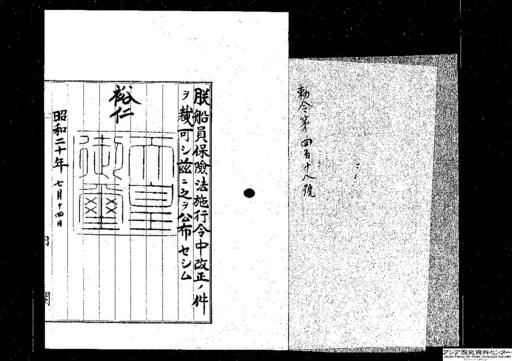 勅令第四百十八號
朕船員保險法施行令中改正ノ件
ヲ裁可シ玆ニ之ヲ公布セシム
裕仁
天皇御璽
昭和二十年七月十四日
内閣
アジア歴史資料センター